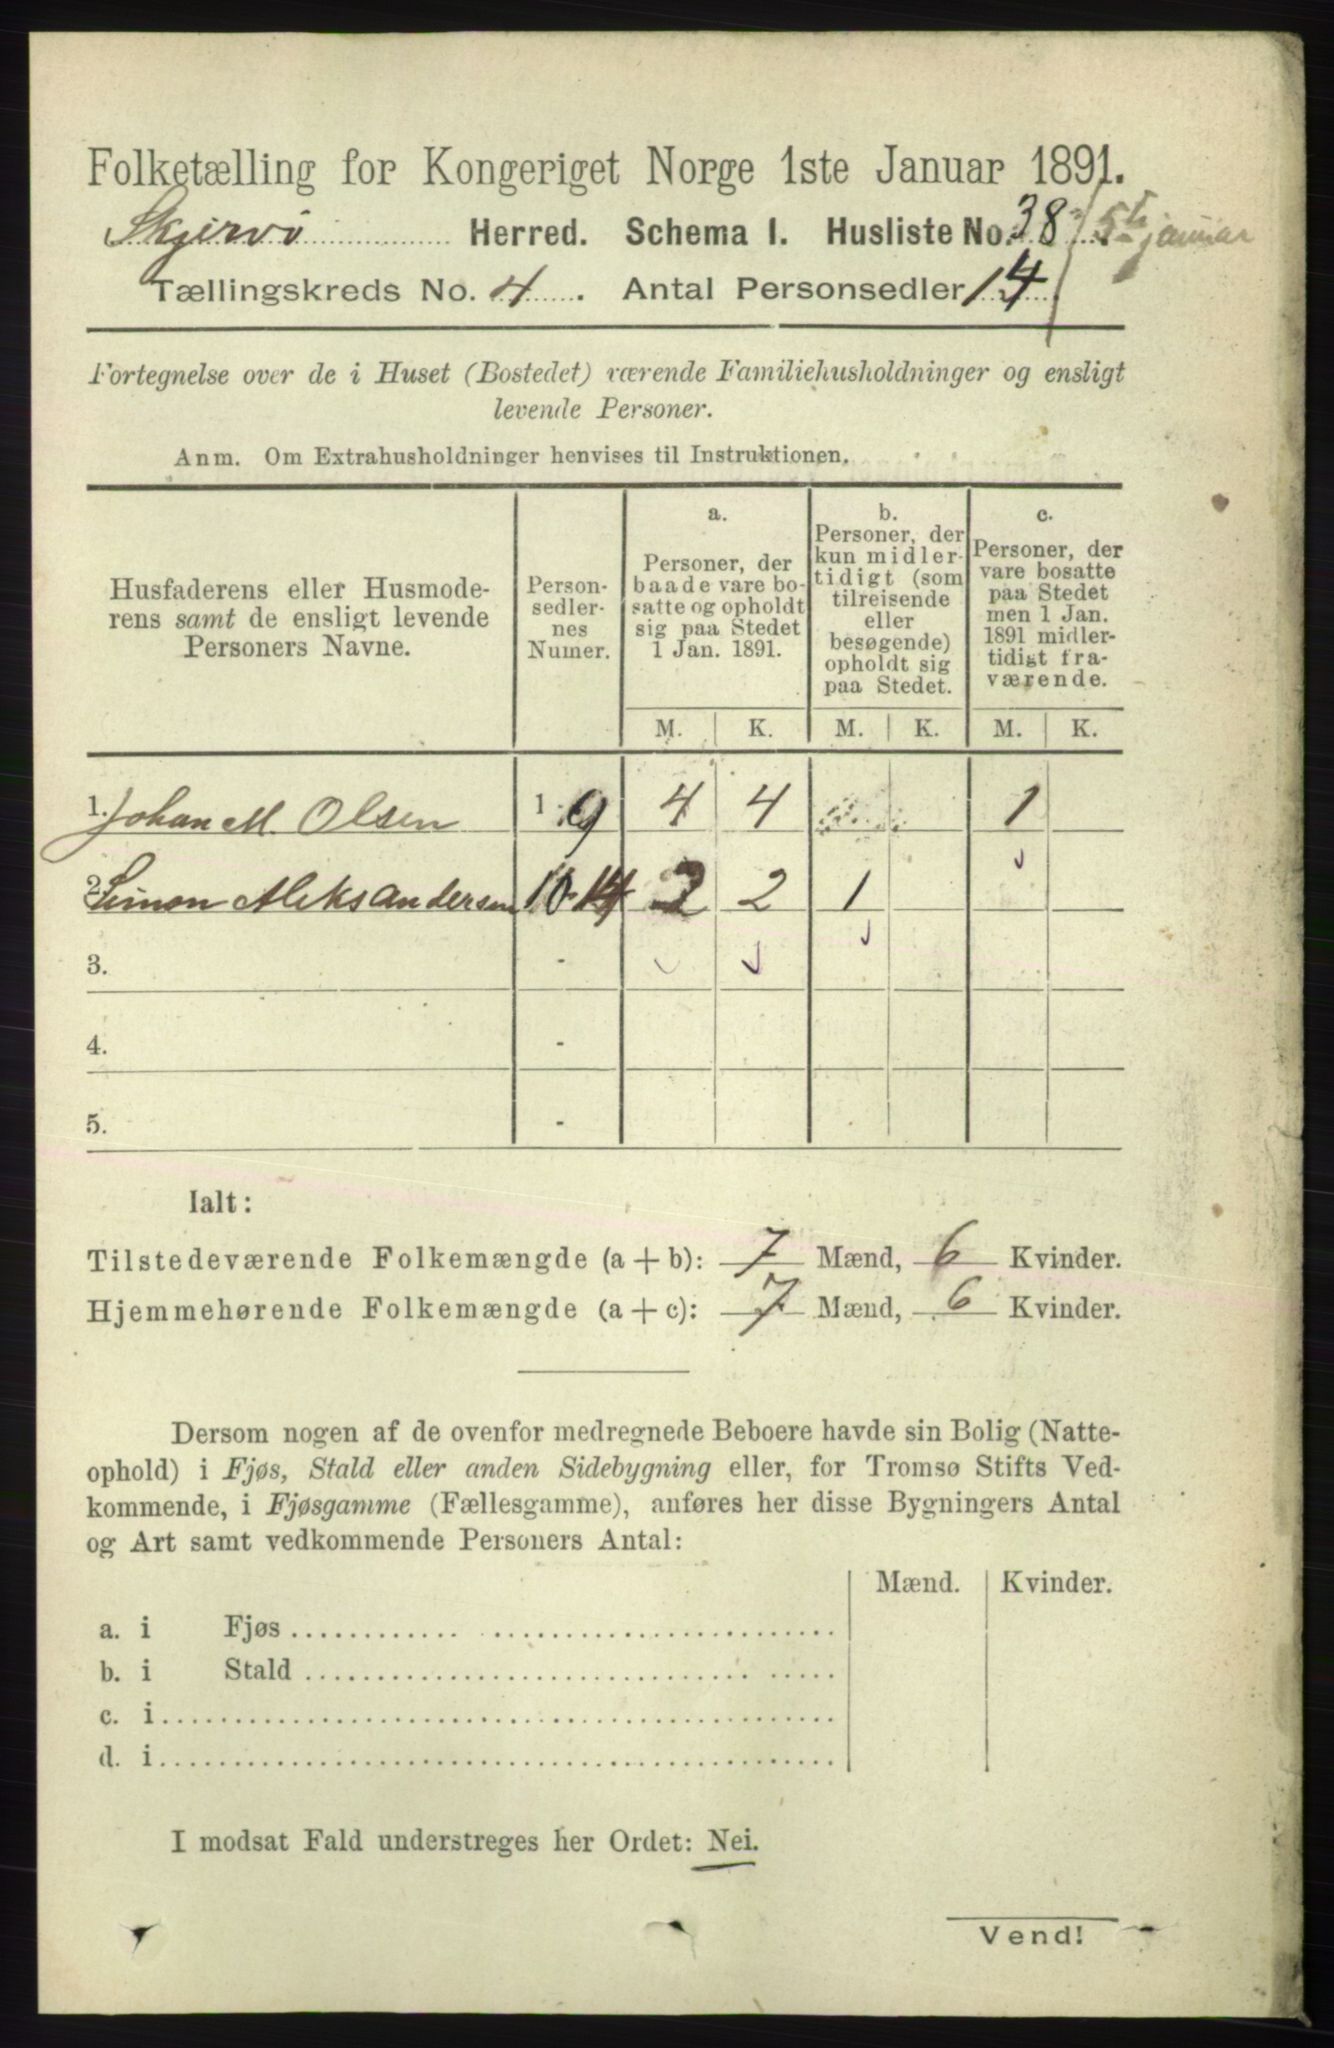 Folketælling for Kongeriget Norge 1ste Januar 1891.
Skjervö Herred. Schema I. Husliste No. 38 5te januar
Tællingskreds No. 4. Antal Personsedler 14
Fortegnelse over de i Huset (Bostedet) værende Familiehusholdninger og ensligt
levende Personer.
Anm. Om Extrahusholdninger henvises til Instruktionen.
Husfaderens eller Husmode-
rens samt de ensligt levende
Personers Navne.
Person-
sedler-
nes
Numer.
a.
Personer, der
baade vare bo-
satte og opholdt
sig paa Stedet
1 Jan. 1891.
b.
Personer, der
kun midler-
tidigt (som
tilreisende
eller
besøgende)
opholdt sig
paa Stedet.
c.
Personer, der
vare bosatte
paa Stedet
men 1 Jan.
1891 midler-
tidigt fra-
værende.
M. K. M. K. M. K.
1. Johan M. Olsen 1 - 9 4 4 1
2. Simon Aleksandersen 10-14 2 2 1
3. -
4. -
5. -
Ialt:
Tilstedeværende Folkemængde (a + b): 7 Mænd, 6 Kvinder.
Hjemmehørende Folkemængde (a + c): 7 Mænd, 6 Kvinder.
Dersom nogen af de ovenfor medregnede Beboere havde sin Bolig (Natte-
ophold) i Fjøs, Stald eller anden Sidebygning eller, for Tromsø Stifts Ved-
kommende, i Fjøsgamme (Fællesgamme), anføres her disse Bygningers Antal
og Art samt vedkommende Personers Antal:
Mænd. Kvinder.
a. i Fjøs
b. i Stald
c. i
d. i
I modsat Fald understreges her Ordet: Nei.
Vend!